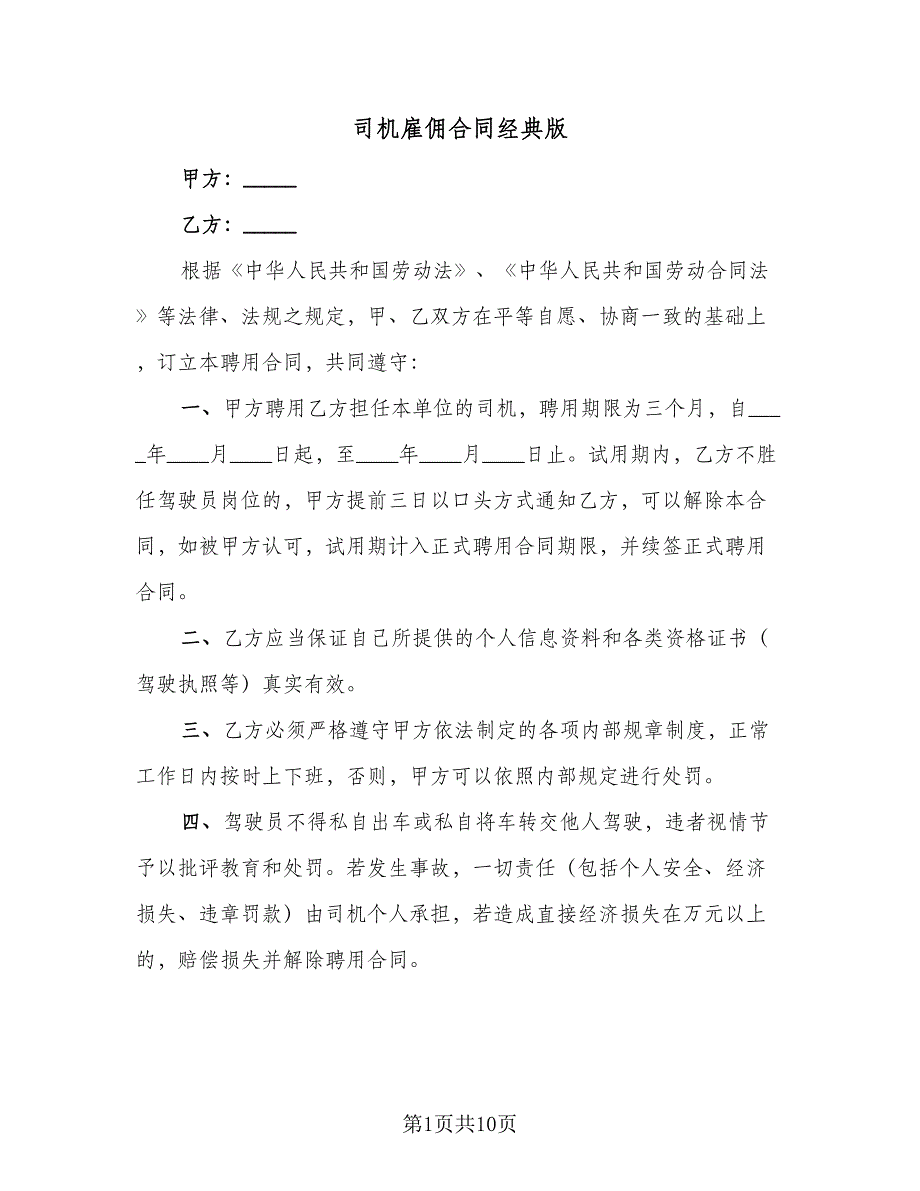 司机雇佣合同经典版
甲方：_____
乙方：_____
根据《中华人民共和国劳动法》、《中华人民共和国劳动合同法
》等法律、法规之规定，甲、乙双方在平等自愿、协商一致的基础上
，订立本聘用合同，共同遵守：
一、甲方聘用乙方担任本单位的司机，聘用期限为三个月，自___
_年____月____日起，至____年____月____日止。试用期内，乙方不胜
任驾驶员岗位的，甲方提前三日以口头方式通知乙方，可以解除本合
同，如被甲方认可，试用期计入正式聘用合同期限，并续签正式聘用
合同。
二、乙方应当保证自己所提供的个人信息资料和各类资格证书（
驾驶执照等）真实有效。
三、乙方必须严格遵守甲方依法制定的各项内部规章制度，正常
工作日内按时上下班，否则，甲方可以依照内部规定进行处罚。
四、驾驶员不得私自出车或私自将车转交他人驾驶，违者视情节
予以批评教育和处罚。若发生事故，一切责任（包括个人安全、经济
损失、违章罚款）由司机个人承担，若造成直接经济损失在万元以上
的，赔偿损失并解除聘用合同。
第1页共10页